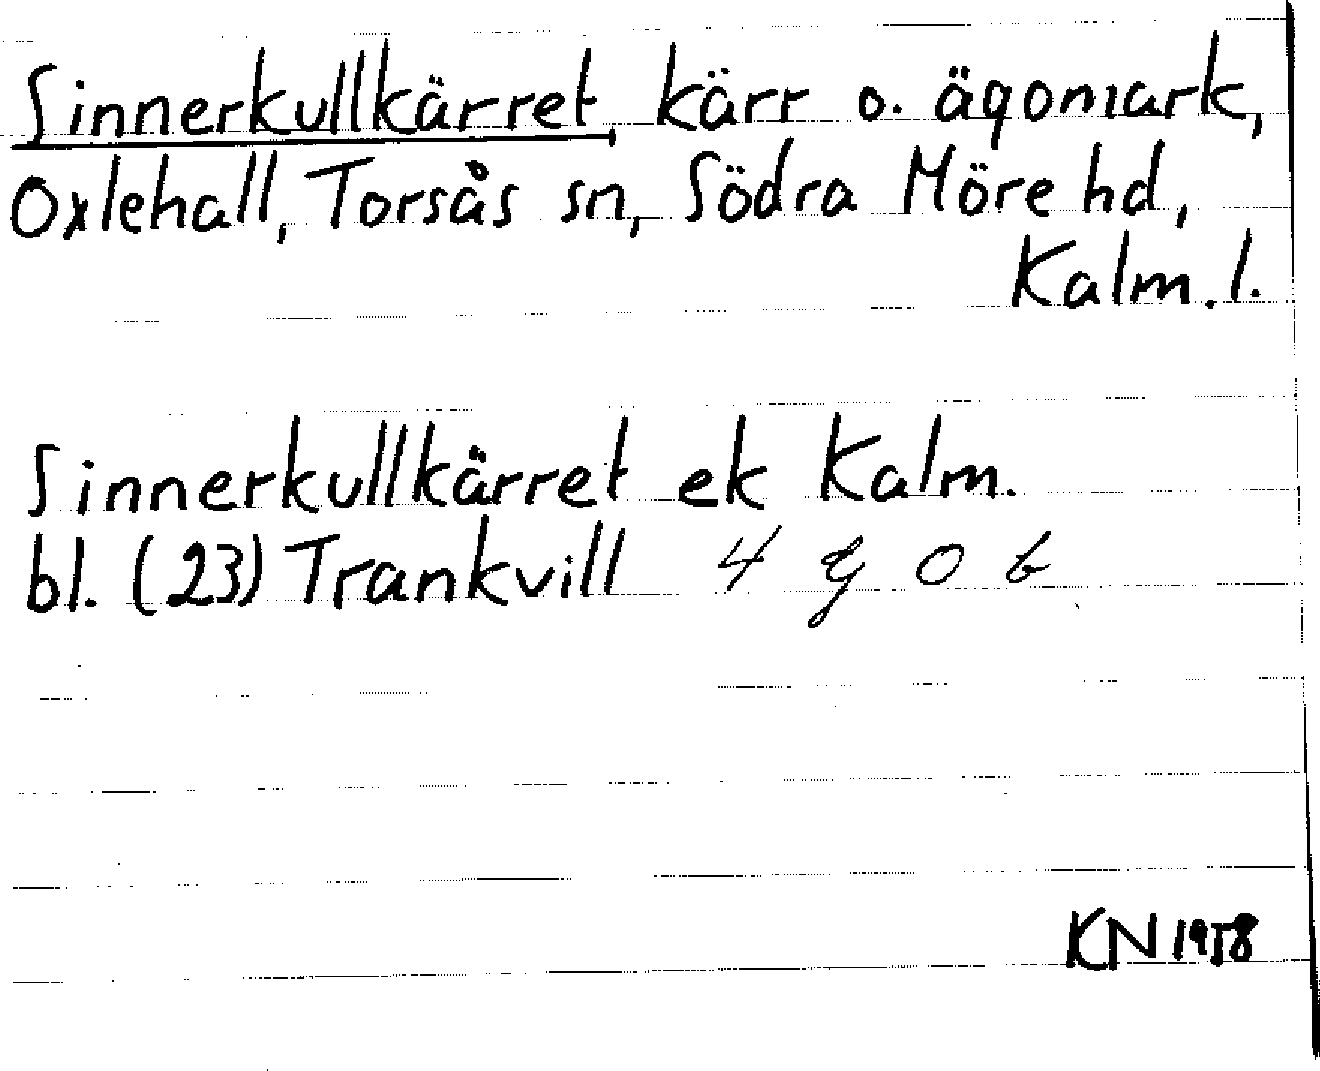 Sinnerkullkärret, kärr o. ägomark,
Oxlehall, Torsås sn, Södra Möre hd,
Kalm. l.
Sinnerkullkärret ek Kalm.
bl. (23) Trankvill 4 g 0 b
KN 1958